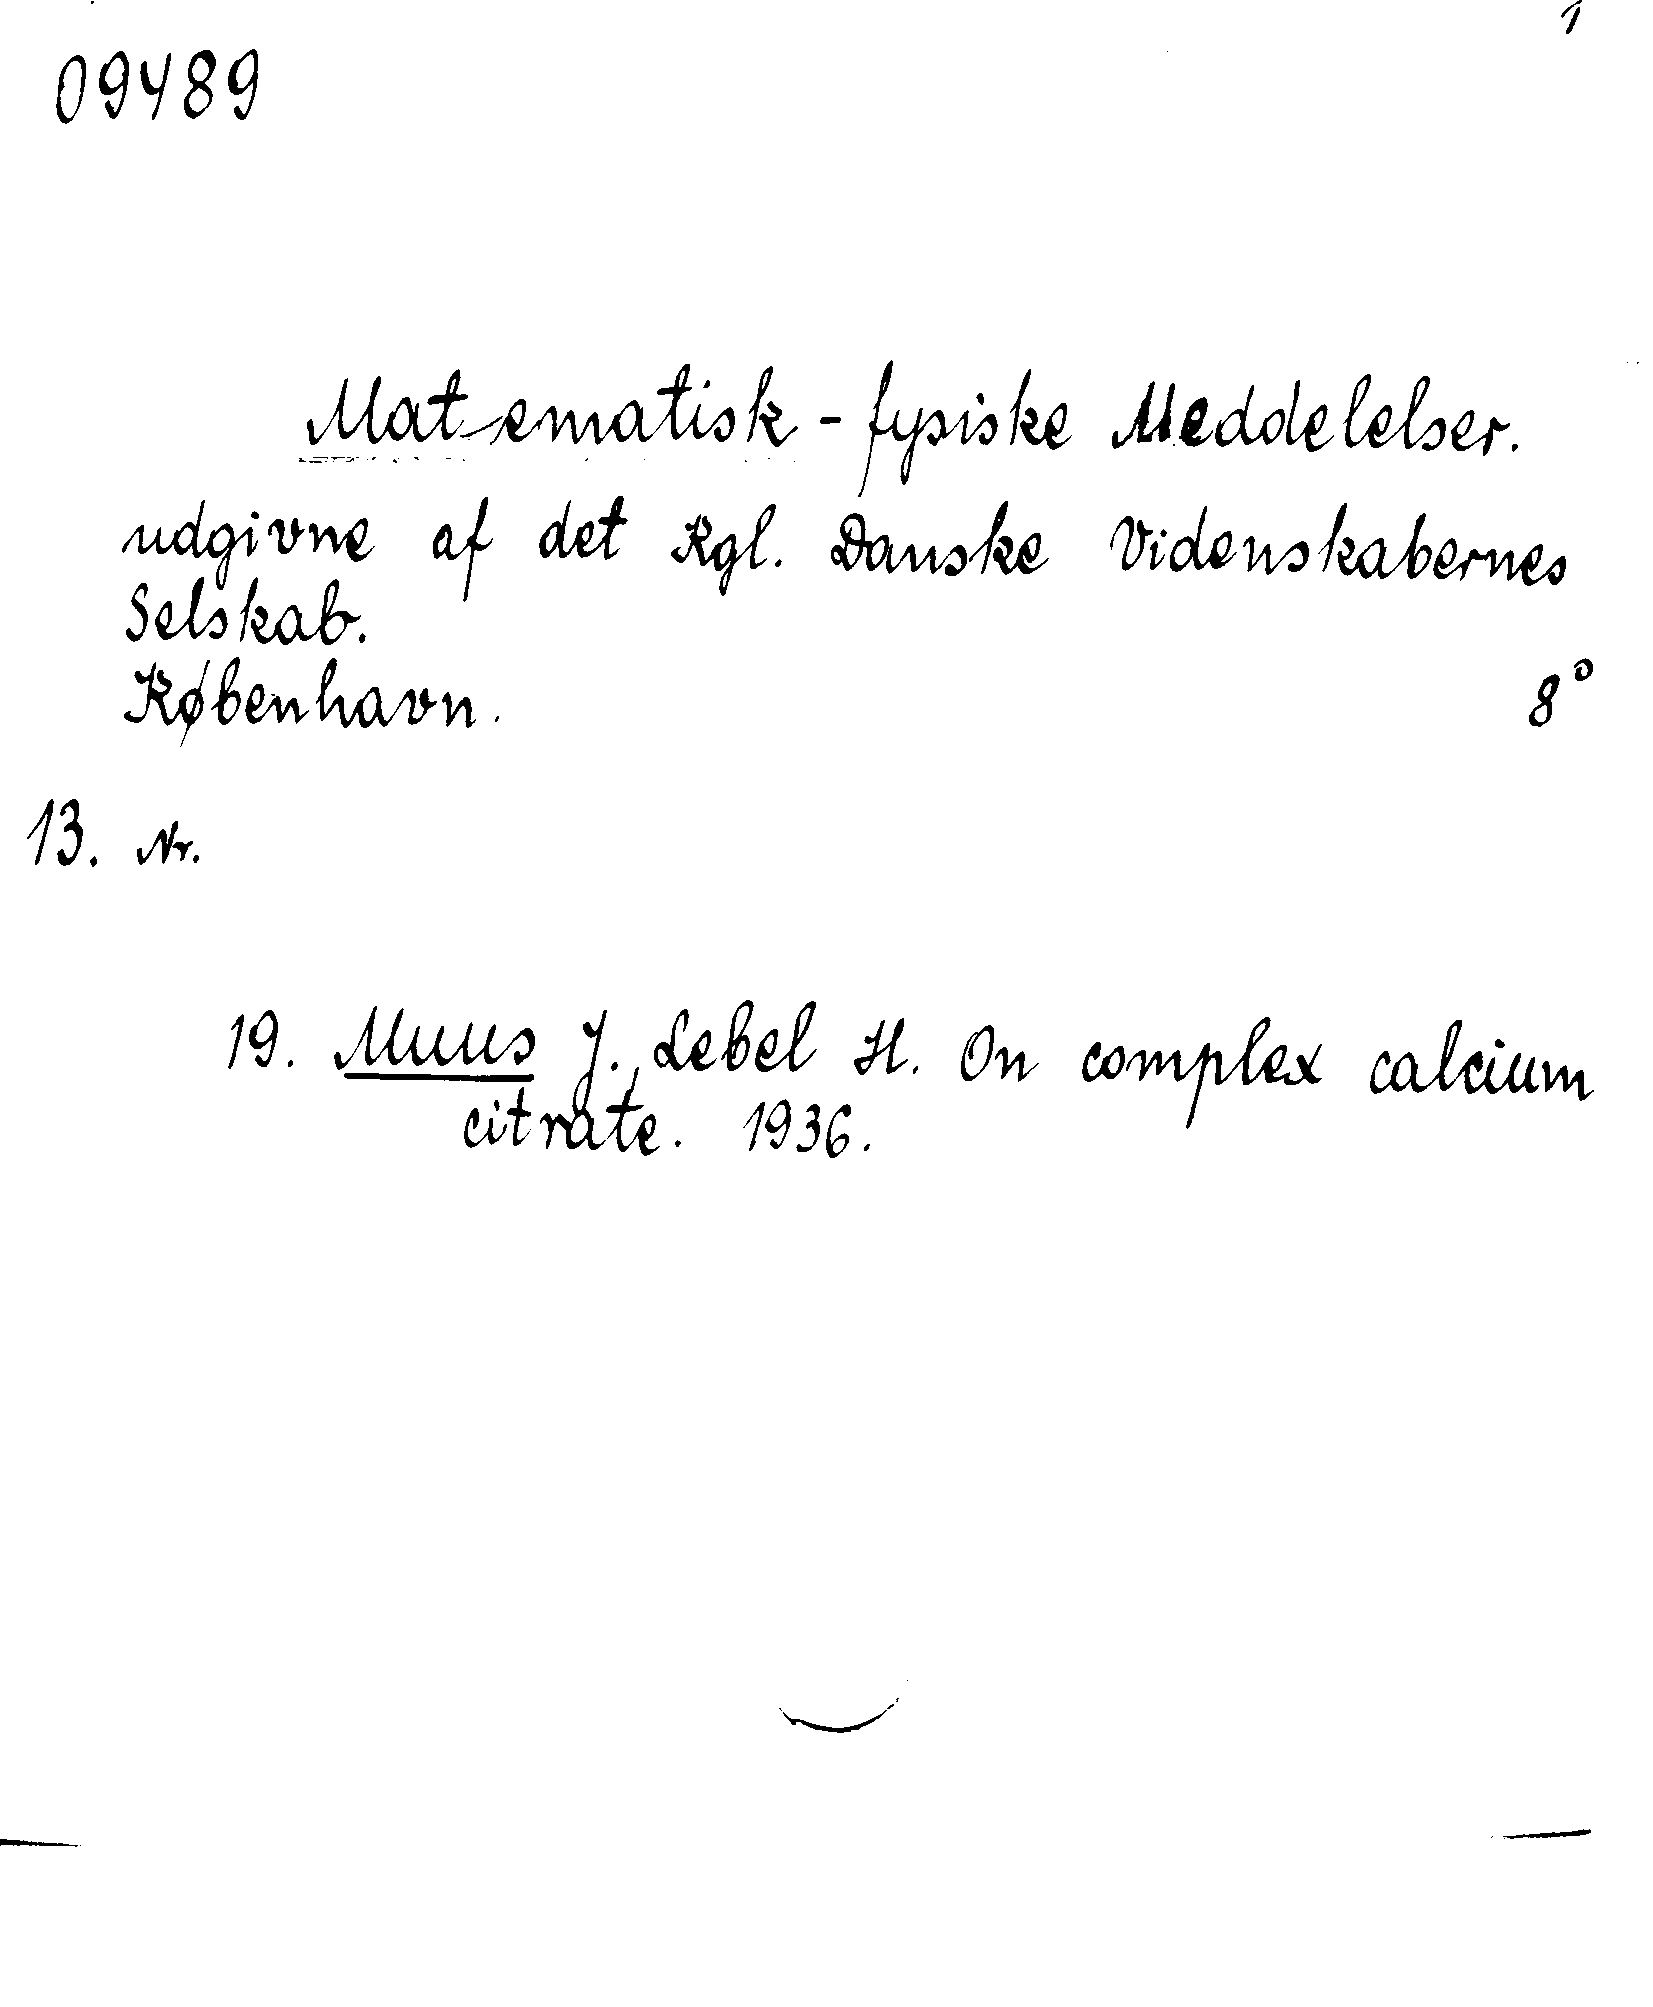 1
09489
Matematisk - fysiske Meddelelser.
udgivne af det Kgl. Danske Videnskabernes
Selskab.
København. 8°
13. Nr.
19. Muus J., Lebel H. On complex calcium
citrate. 1936.